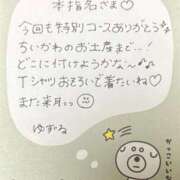 本指名さま♡
今回も特別コースありがとう
ちいかわのお土産まで...!
どこに付けようかな〜♪♪
Tシャツおそろいで着たいね♡
また来月っ☺
ゆずる